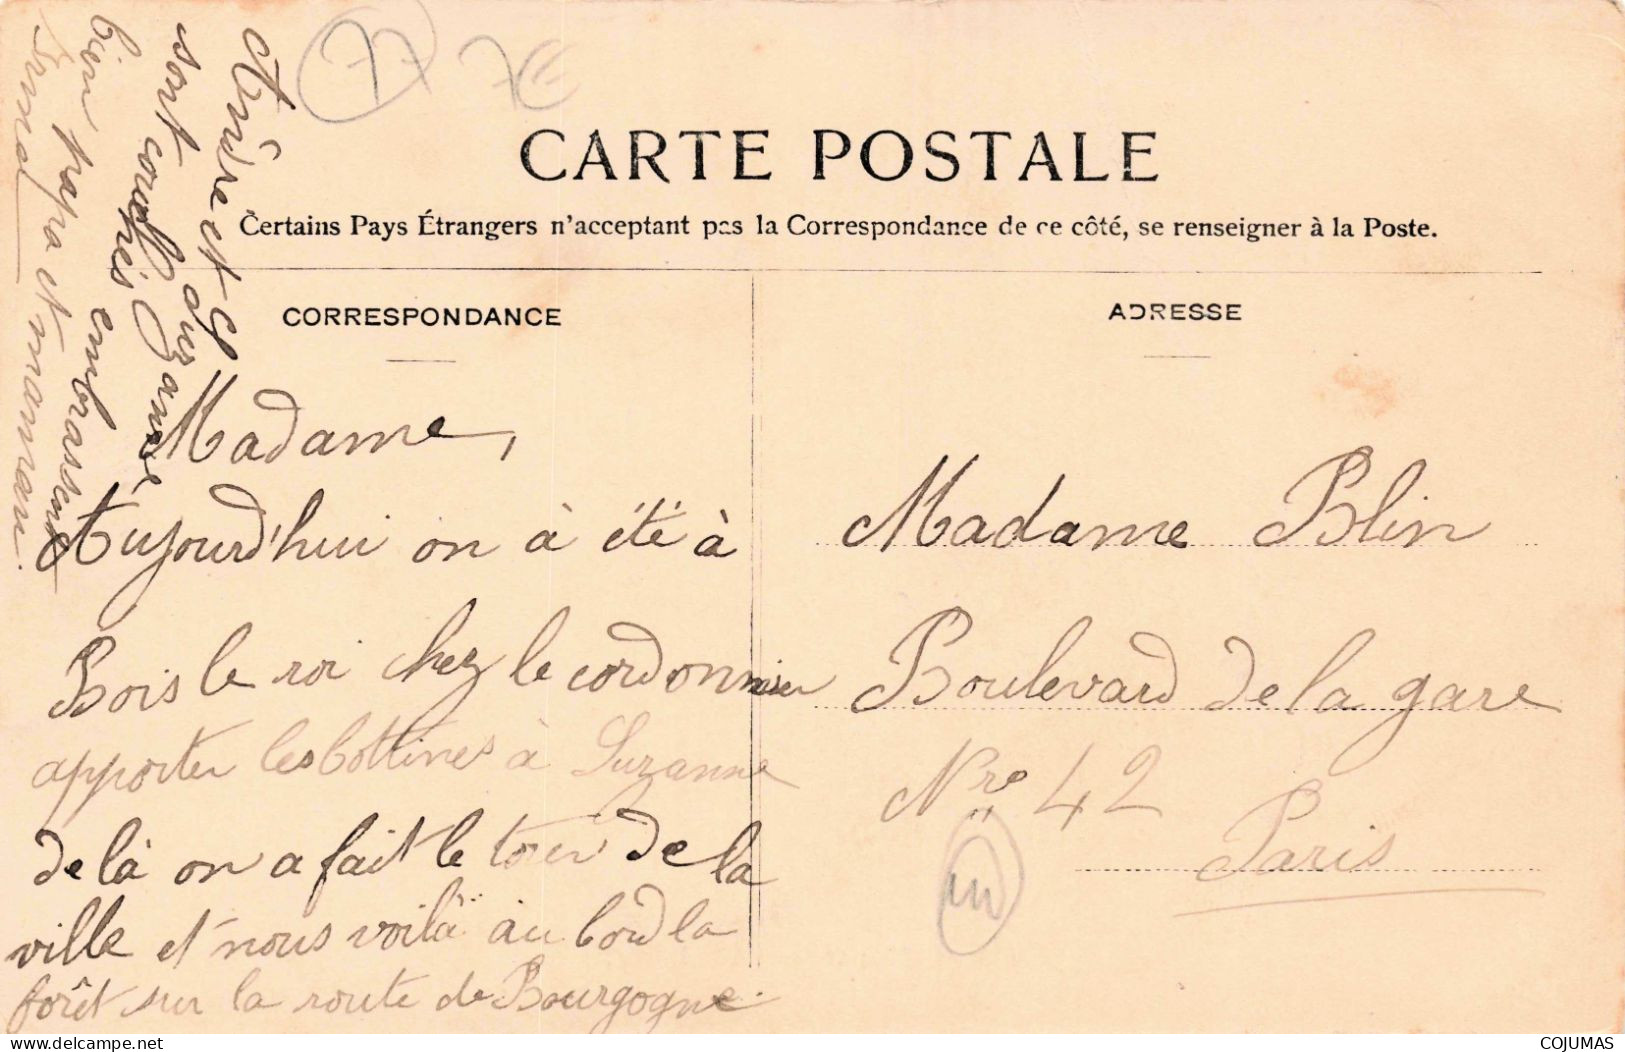 77 7€
CARTE POSTALE
Certains Pays Étrangers n'acceptant pas la Correspondance de ce côté, se renseigner à la Poste.
CORRESPONDANCE
Madame,
Aujourd'hui on à été à
Bois le roi chez le cordonnier
apporter les bottines à Suzanne
de là on a fait le tour de la
ville et nous voilà au bord la
forêt sur la route de Bourgogne.
André et
sont couchés Suzanne
bien papa et maman
embrassent
ADRESSE
Madame Blin
Boulevard de la gare
Nre 42
Paris
delcampe.net
COJUMAS